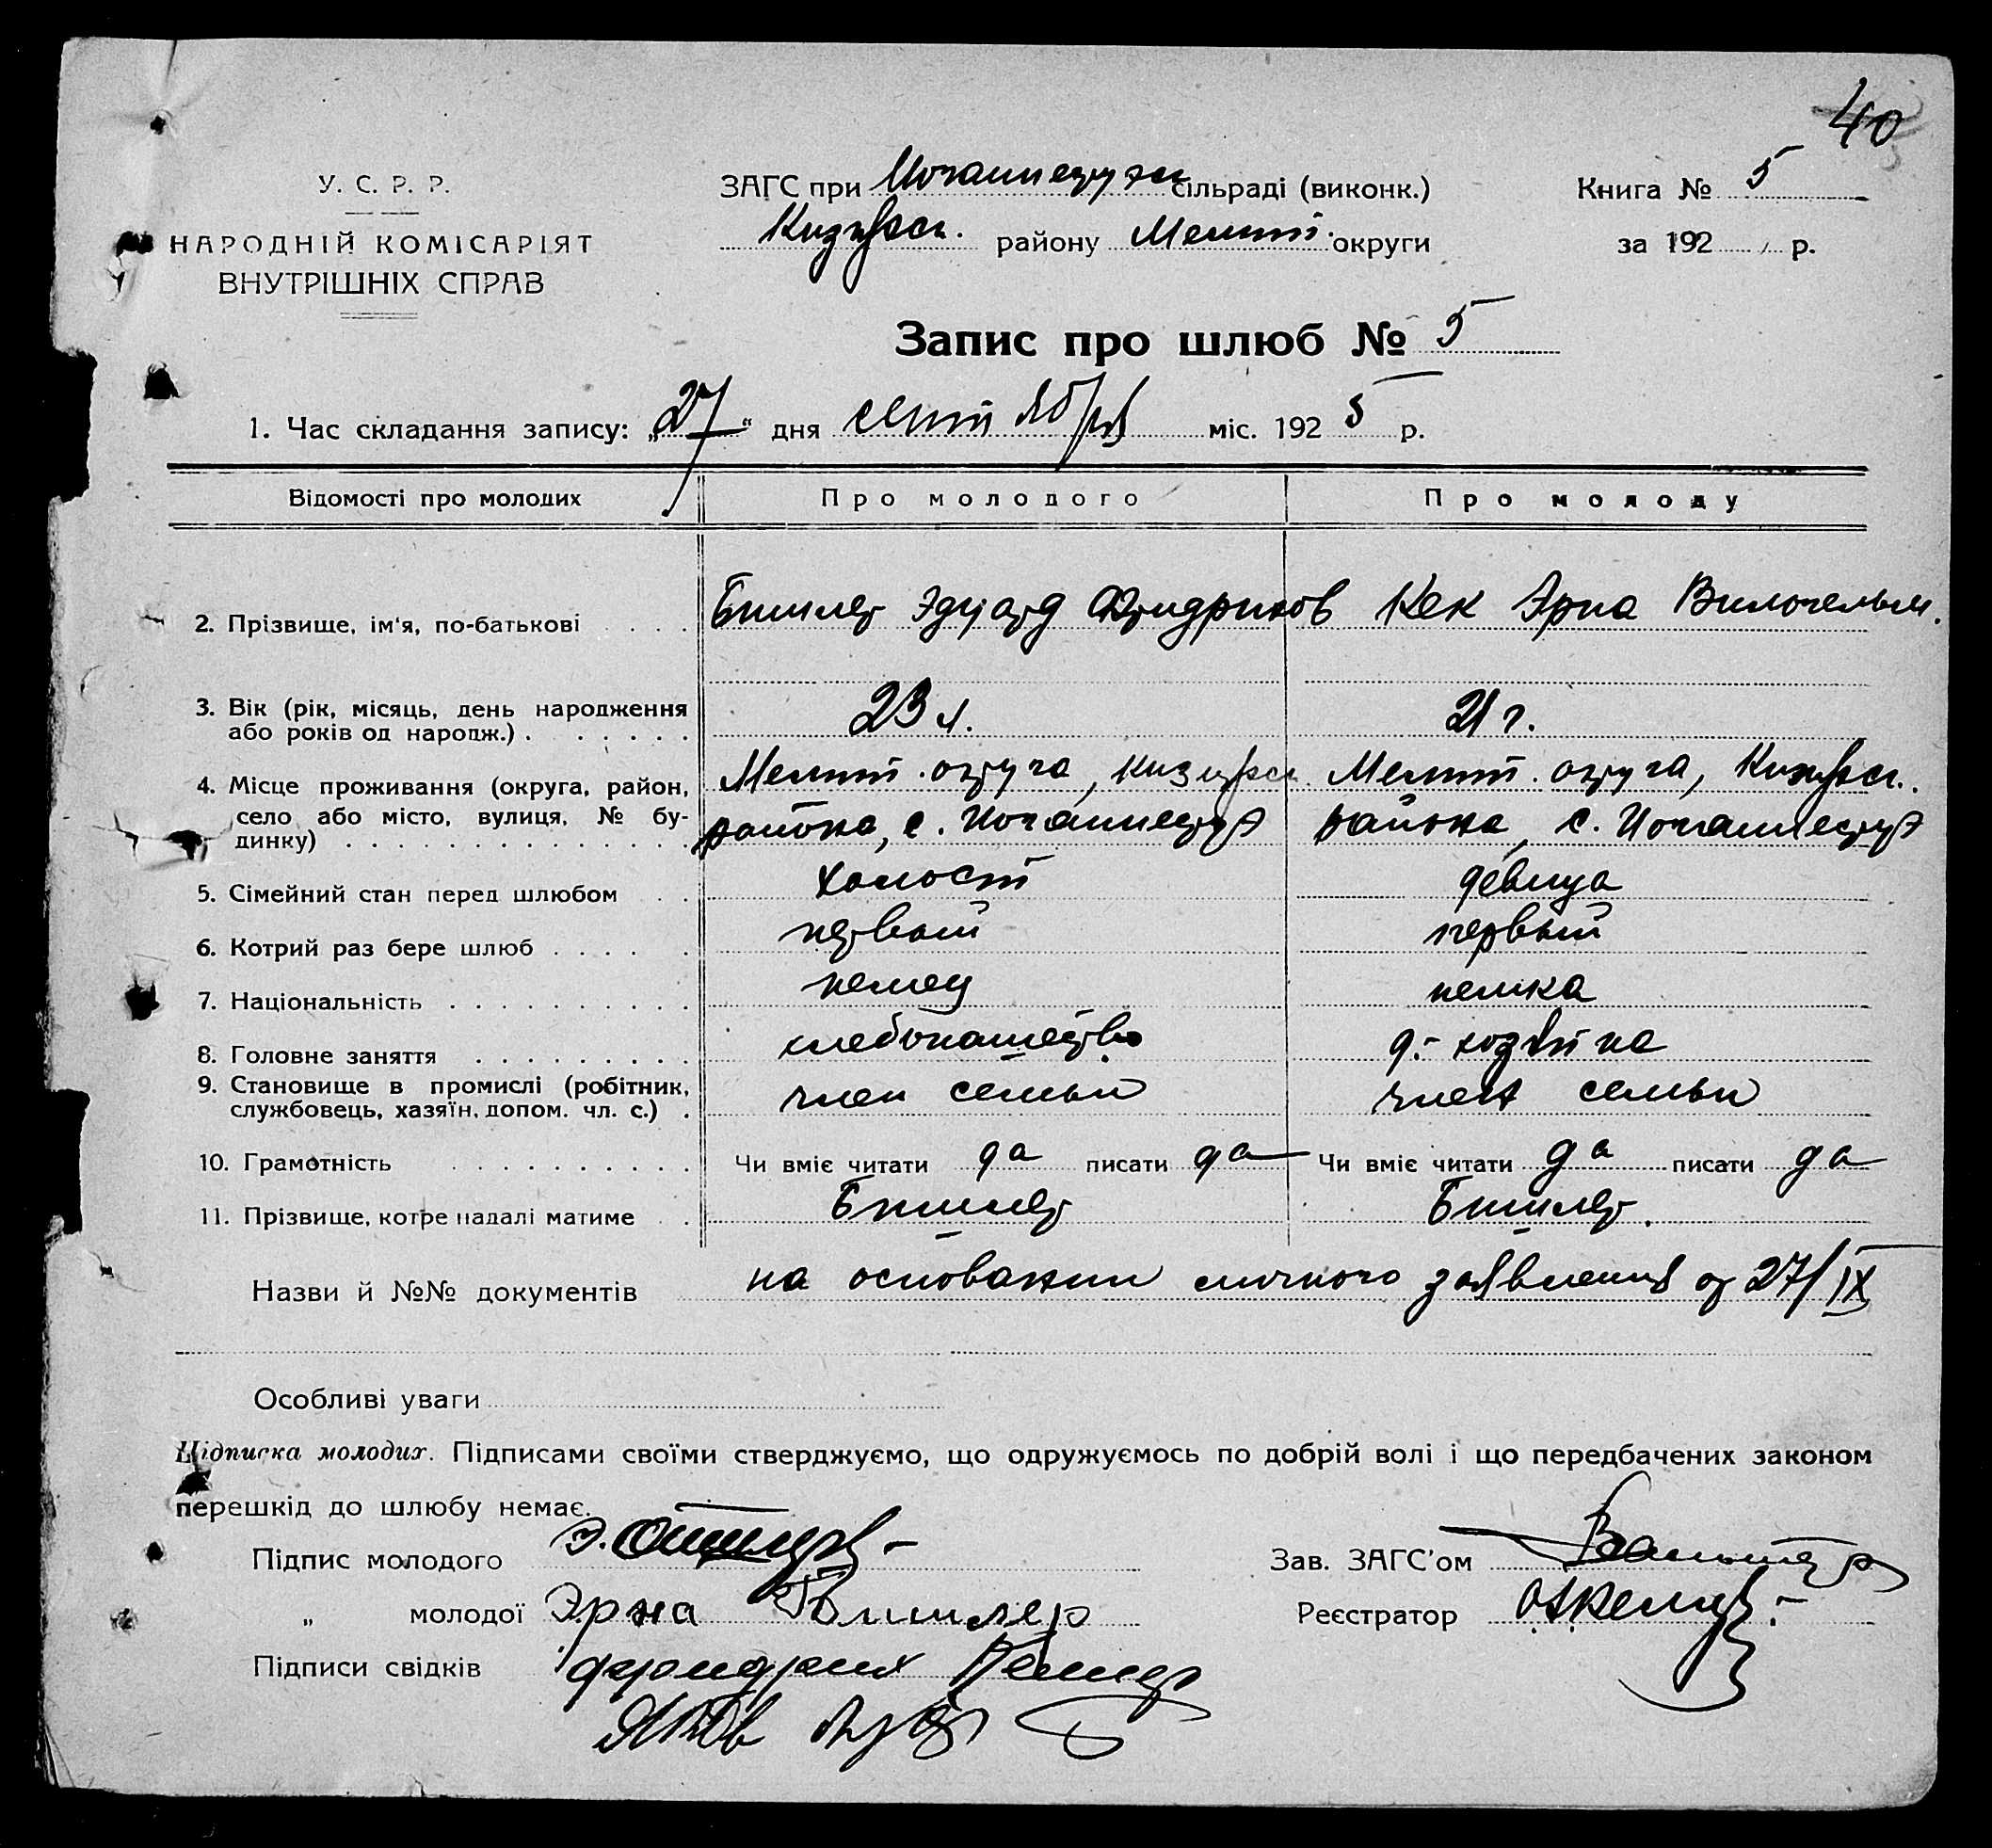 40
У. С. Р. Р.
НАРОДНІЙ КОМІСАРІЯТ
ВНУТРІШНІХ СПРАВ
ЗАГС при Иоганнесруэск сільраді (виконк.)
районy Мелит. округи
Книга № 5
за 192 р.
Запис про шлюб № 5
1. Час складання запису: „27“ дня сентября міс. 1925 р.
Відомості про молодих Про молодого Про молоду
2. Прізвище, ім'я, по-батькові Бишлер Эдуард Фридрихов Кек Эрна Вильгельм.
3. Вік (рік, місяць, день народження
або років од народж.) 23 л. 21 г.
4. Місце проживання (округа, район, Мелит. округа, Мелит. округа,
село або місто, вулиця, № бу- района, с. Иоганнесруэ района, с. Иоганнесруэ
динку)
5. Сімейний стан перед шлюбом холост девица
6. Котрий раз бере шлюб первый первый
7. Національність немец немка
8. Головне заняття хлебопашество д.-хозяйка
9. Становище в промислі (робітник,
службовець, хазяїн, допом. чл. с.) член семьи член семьи
10. Грамотність Чи вміє читати да писати да Чи вміє читати да писати да
11. Прізвище, котре надалі матиме Бишлер Бишлер.
Назви й №№ документів на основании личного заявления от 27/IX
Особливі уваги
Підписка молодих. Підписами своїми стверджуємо, що одружуємось по добрій волі і що передбачених законом
перешкід до шлюбу немає.
Підпис молодого Э. Зав. ЗАГС'ом Вальтер
„ молодої Эрна Бишлер Реєстратор
Підписи свідків Фридрих
Яков